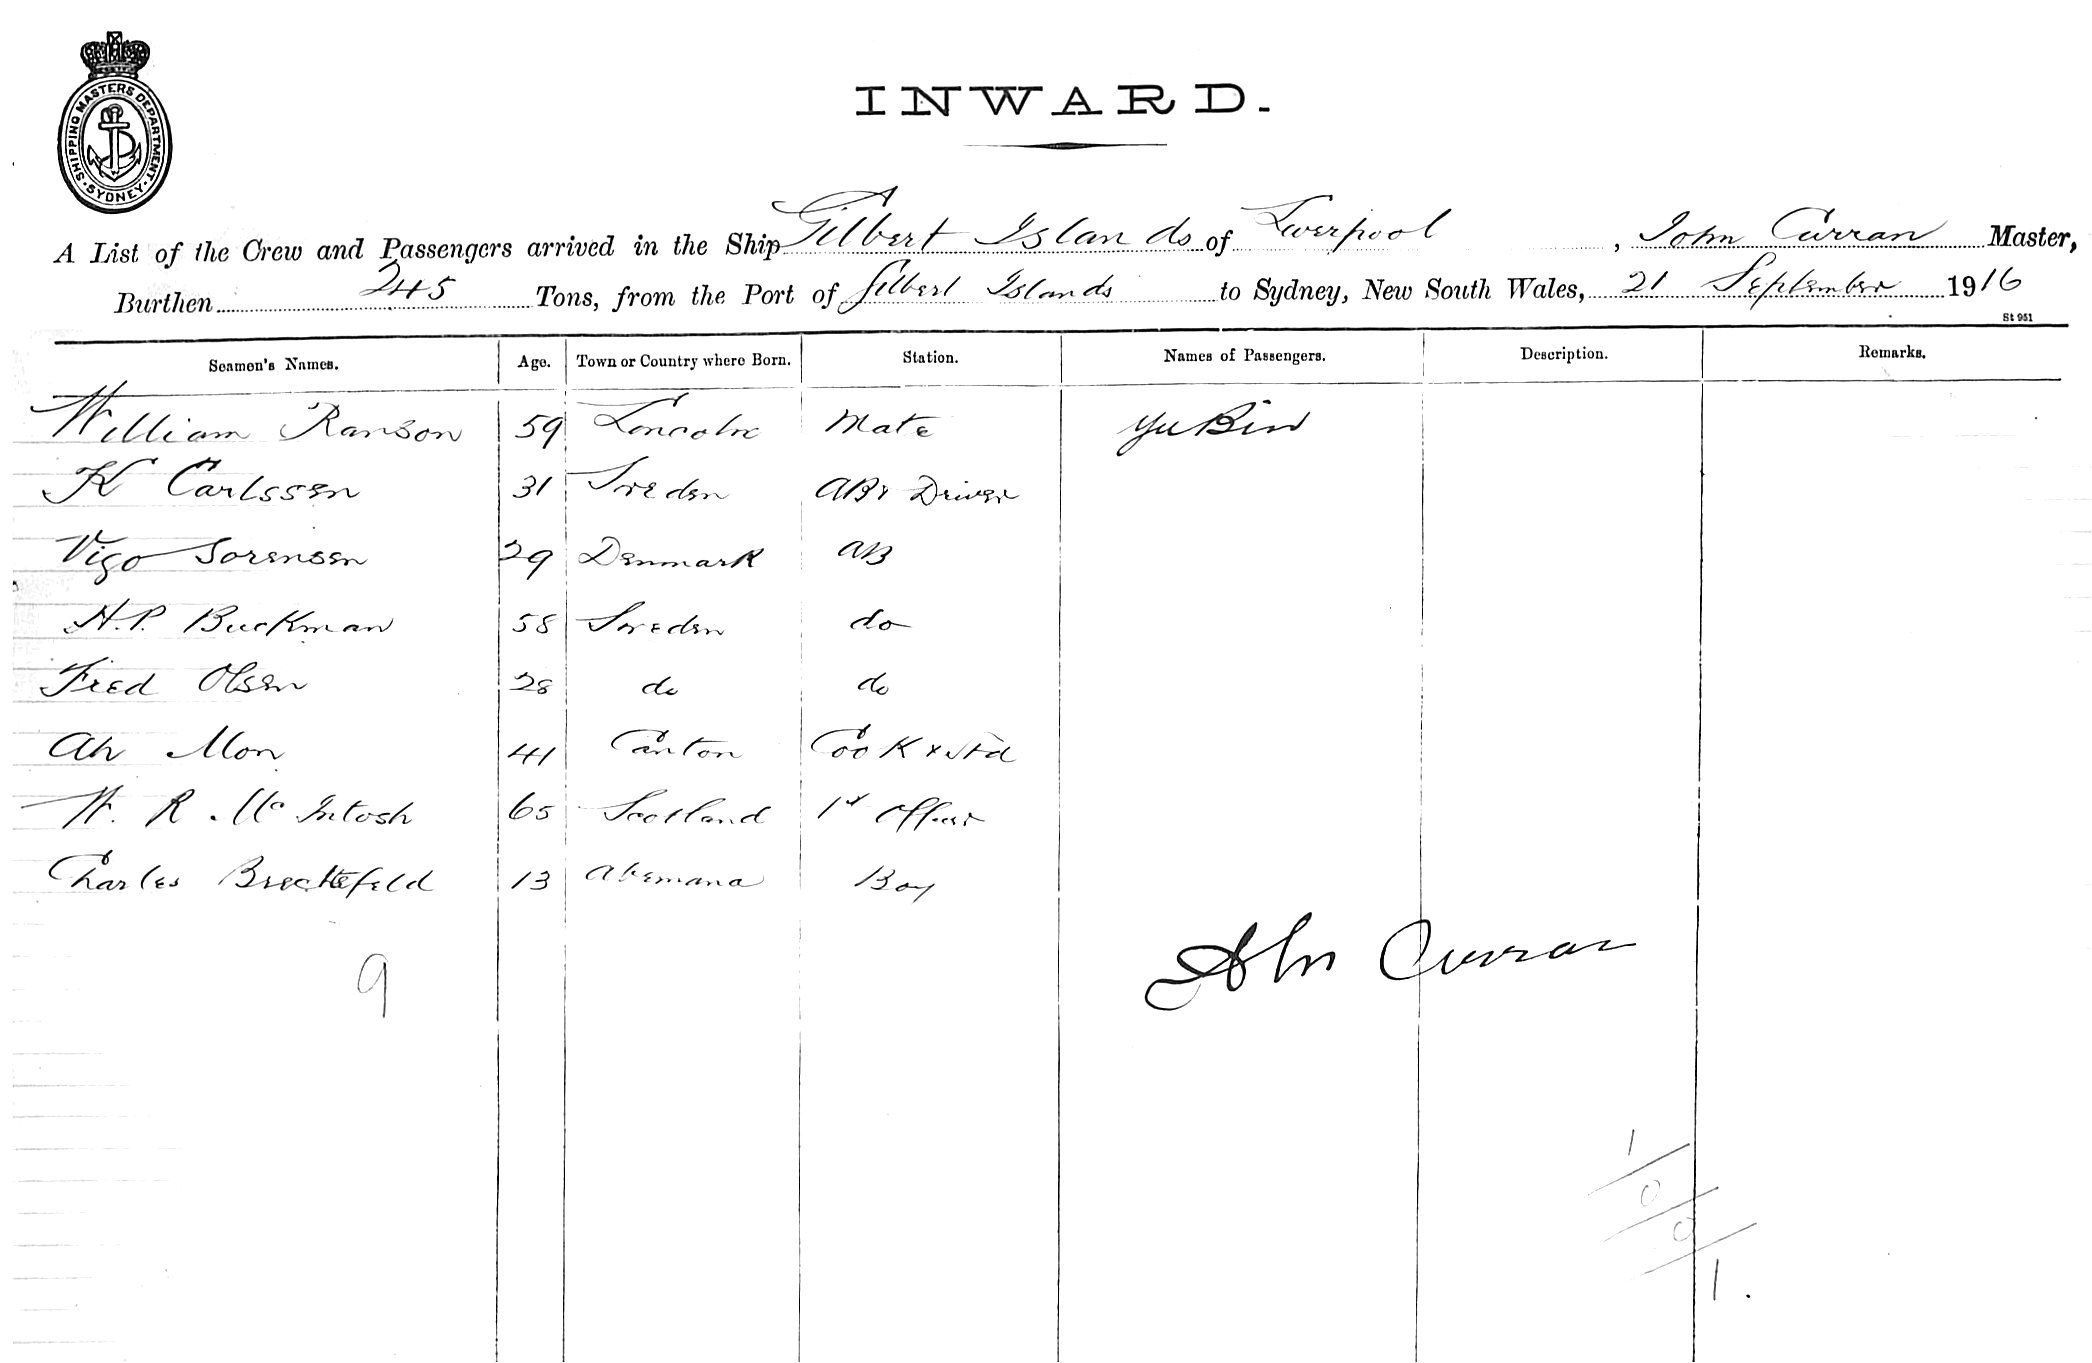 SHIPPING MASTERS DEPARTMENT
SYDNEY
INWARD.
A List of the Crew and Passengers arrived in the Ship Gilbert Islands of Liverpool, John Curran Master,
Burthen 245 Tons, from the Port of Gilbert Islands to Sydney, New South Wales, 21 September 1916
St 951
Seamen's Names. Age. Town or Country where Born. Station. Names of Passengers. Description. Remarks.
William Ranson 59 Lincoln Mate Yu Bin
K Carlssen 31 Sweden AB & Driver
Vigo Sorensen 29 Denmark AB
H.P. Buckman 58 Sweden do
Fred Olsen 28 do do
Ah Mon 41 Canton Cook & Std
W. R. McIntosh 65 Scotland 1st Officer
Charles Brechtefeld 13 Abemana Boy
John Curran
9
1/0/0/1.